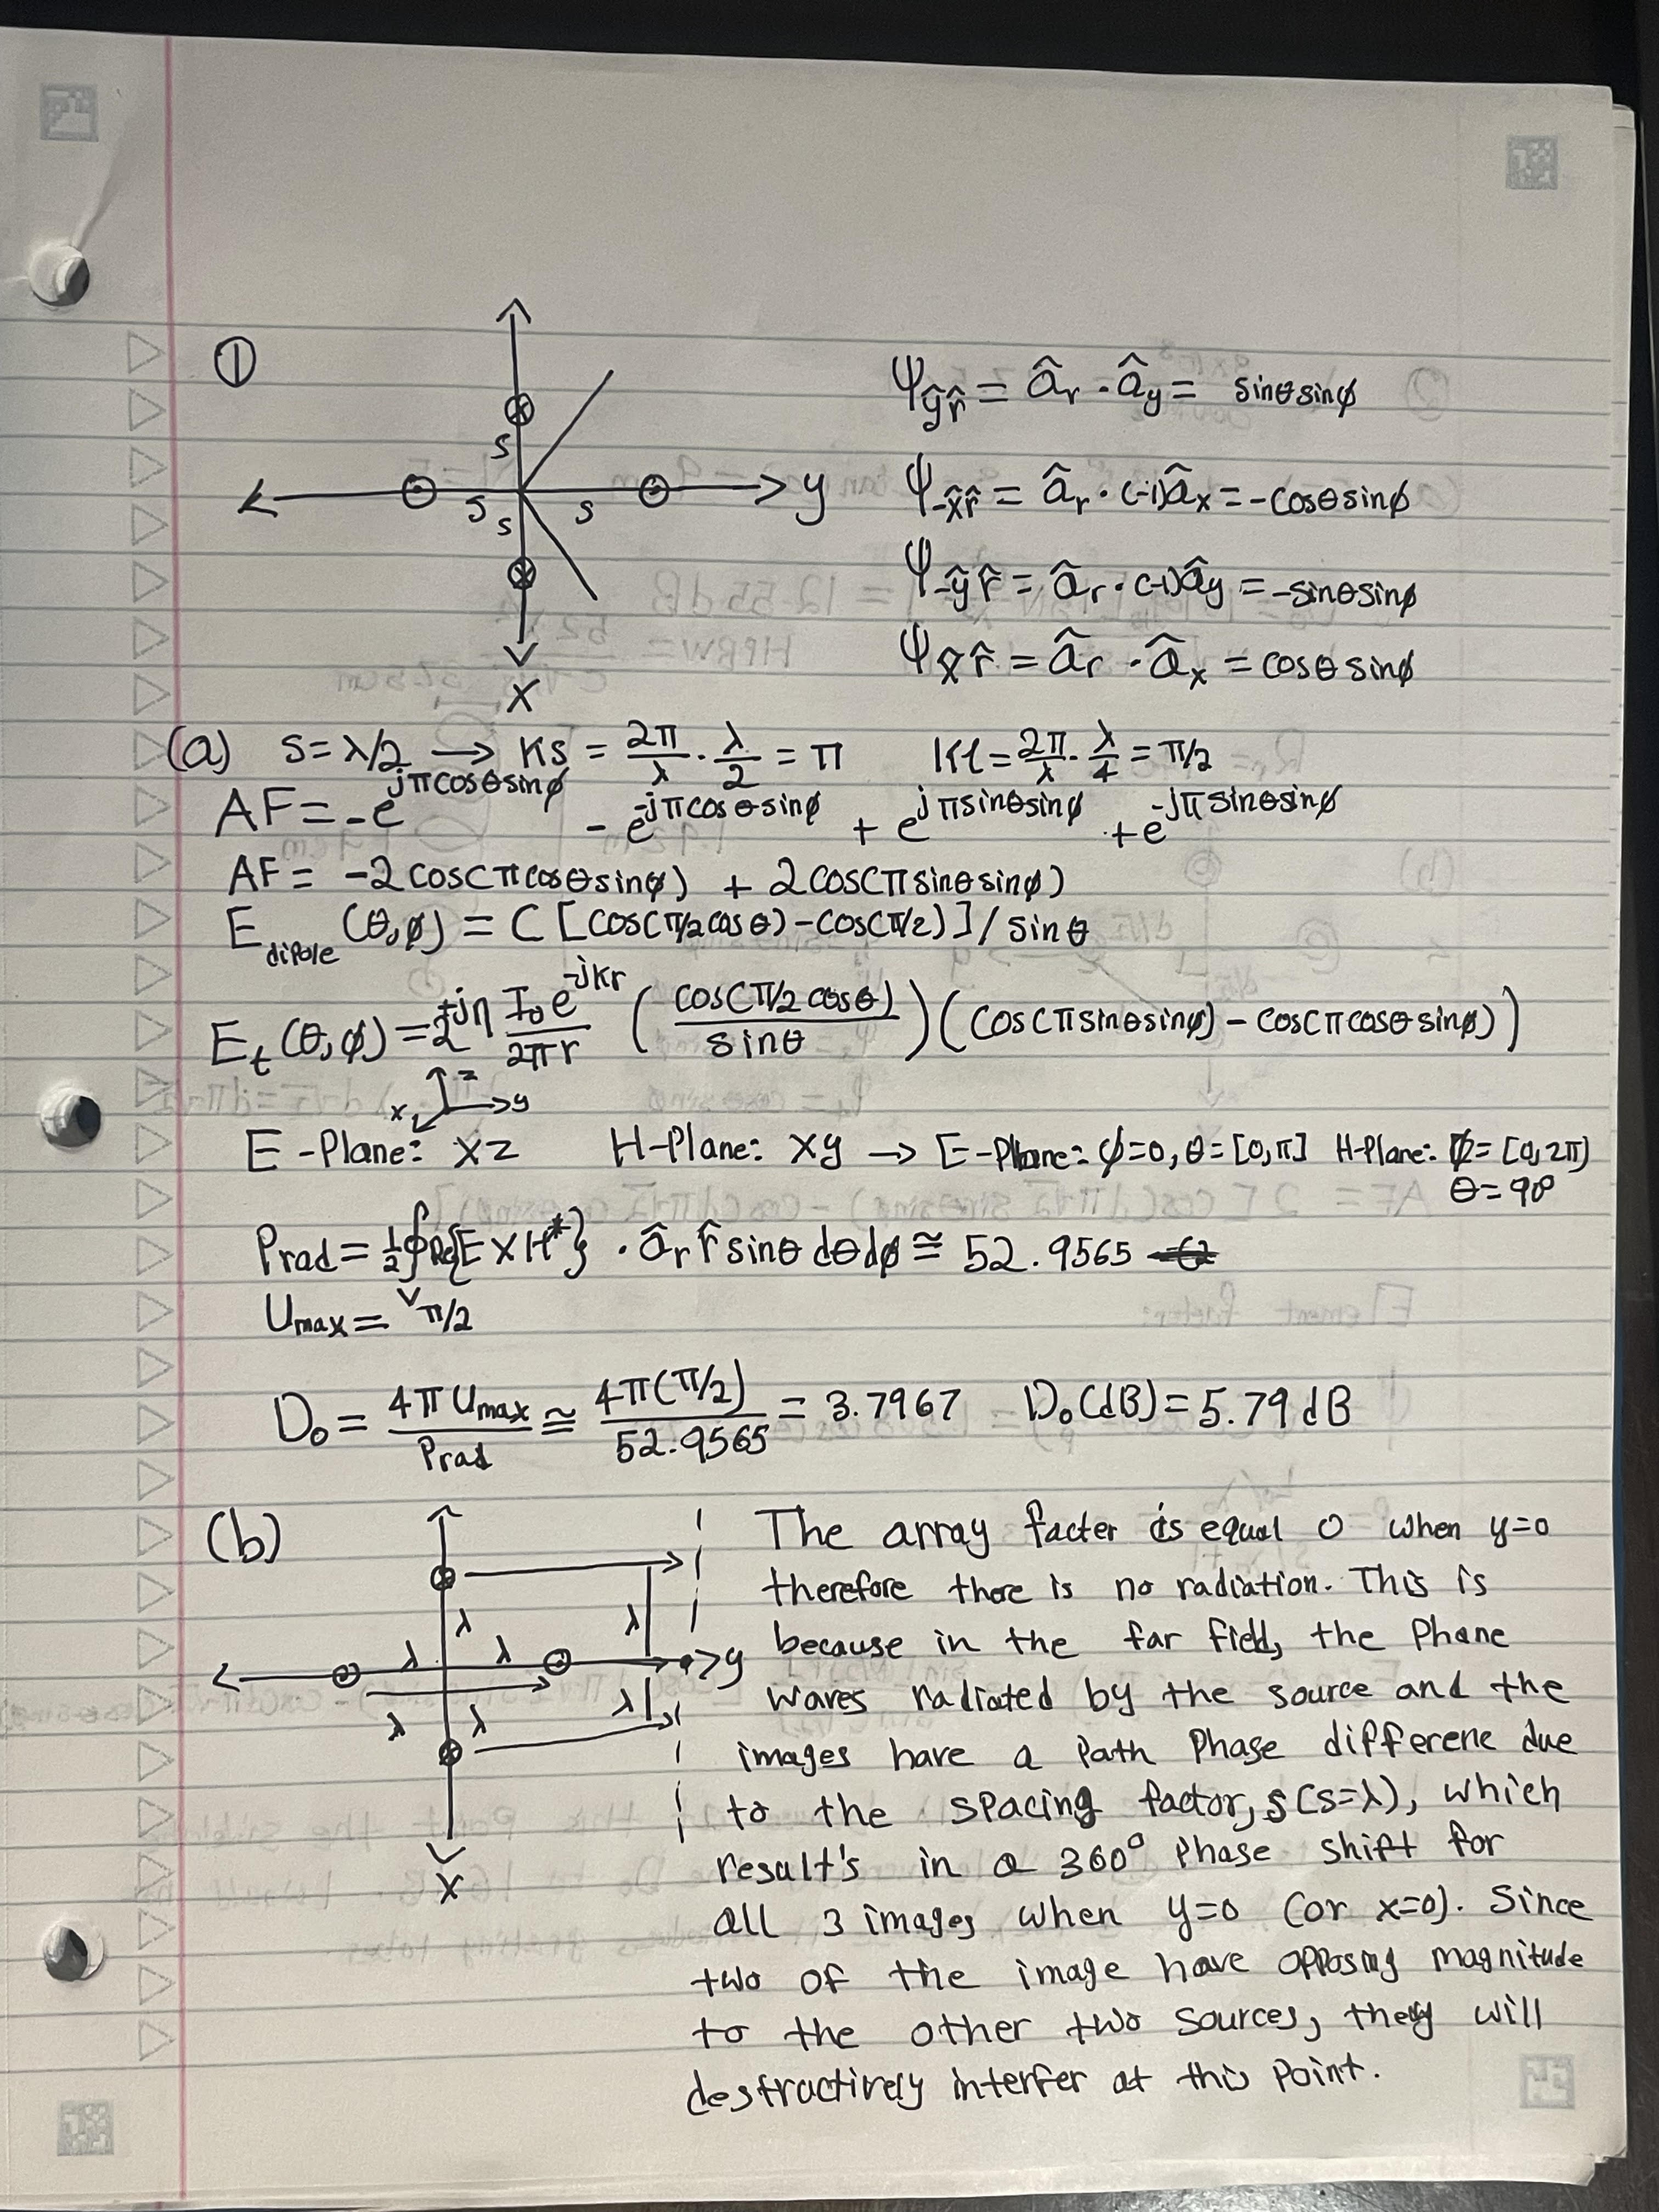 ①
S
S
S
S
y
x
Ψŷr̂ = âr · ây = sinθsinϕ
Ψ-x̂r̂ = âr · (-1)âx = -cosθsinϕ
Ψ-ŷr̂ = âr · (-1)ây = -sinθsinϕ
Ψx̂r̂ = âr · âx = cosθsinϕ
(a) S=λ/2 → KS = 2π/λ · λ/2 = π Kl = 2π/λ · λ/4 = π/2
AF = -e^{jπcosθsinϕ} - e^{-jπcosθsinϕ} + e^{jπsinθsinϕ} + e^{-jπsinθsinϕ}
AF = -2cos(πcosθsinϕ) + 2cos(πsinθsinϕ)
E_dipole (θ,ϕ) = C [cos(π/2 cosθ) - cos(π/2)] / sinθ
E_t (θ,ϕ) = 2 jη I_0 e^{-jkr} / 2πr ( cos(π/2 cosθ) / sinθ ) (cos(πsinθsinϕ) - cos(πcosθsinϕ))
z
x y
E-Plane: xz H-Plane: xy → E-Plane: ϕ=0, θ=[0,π] H-Plane: ϕ=[0,2π]
θ=90°
Prad = 1/2 ∯ Re{E×H*} · âr r̂ sinθ dθdϕ ≅ 52.9565
Umax = π/2
D₀ = 4π Umax / Prad ≅ 4π(π/2) / 52.9565 = 3.7967 D₀(dB) = 5.79 dB
(b)
λ
λ
λ
λ
λ
λ
λ
y
x
The array facter is equal 0 when y=0
therefore there is no radiation. This is
because in the far field, the Phane
waves radiated by the source and the
images have a Path Phase differene due
to the spacing factor, s (s=λ), which
result's in a 360° Phase shift for
all 3 images when y=0 (or x=0). Since
two of the image have opposing magnitude
to the other two sources, they will
destructively interfer at this Point.